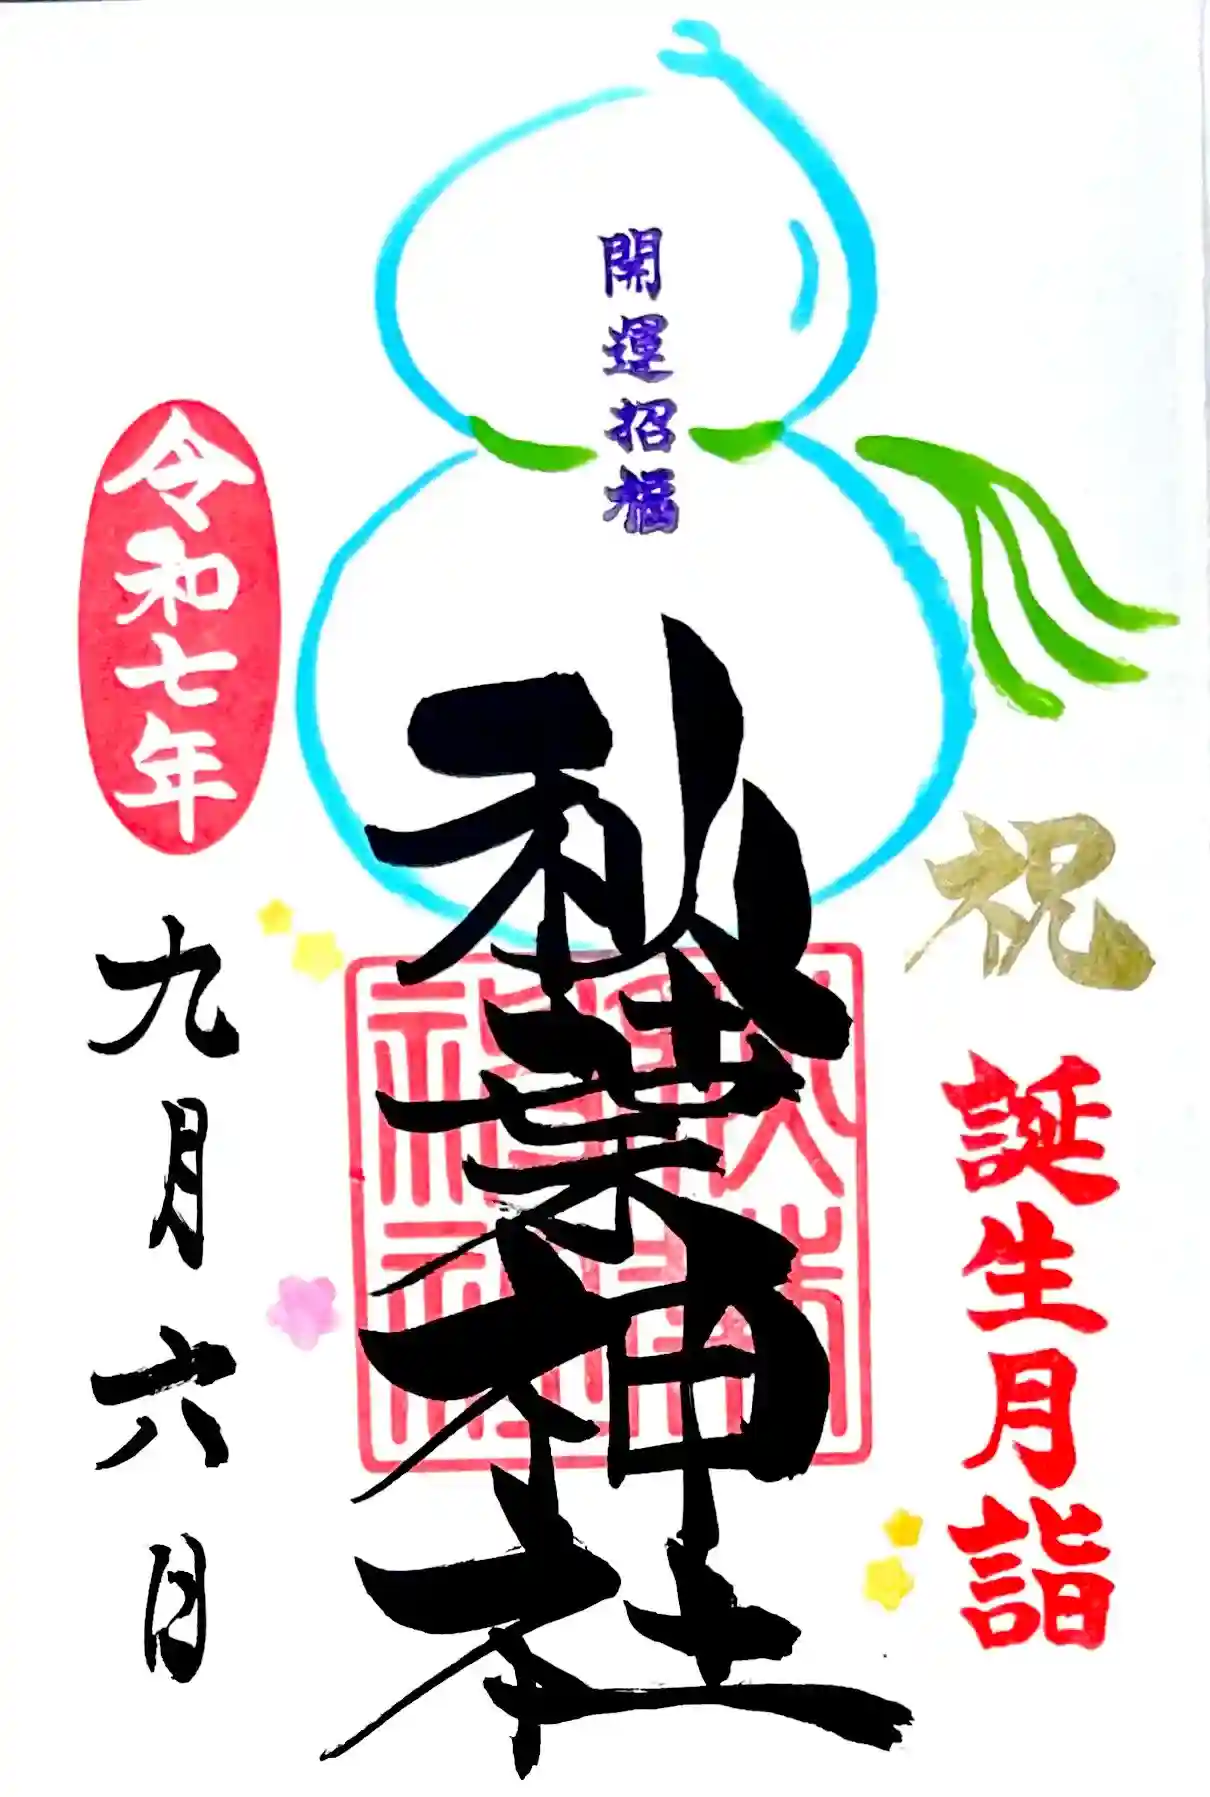 祝
誕生月詣
開運招福
秋葉神社
令和七年
九月六日